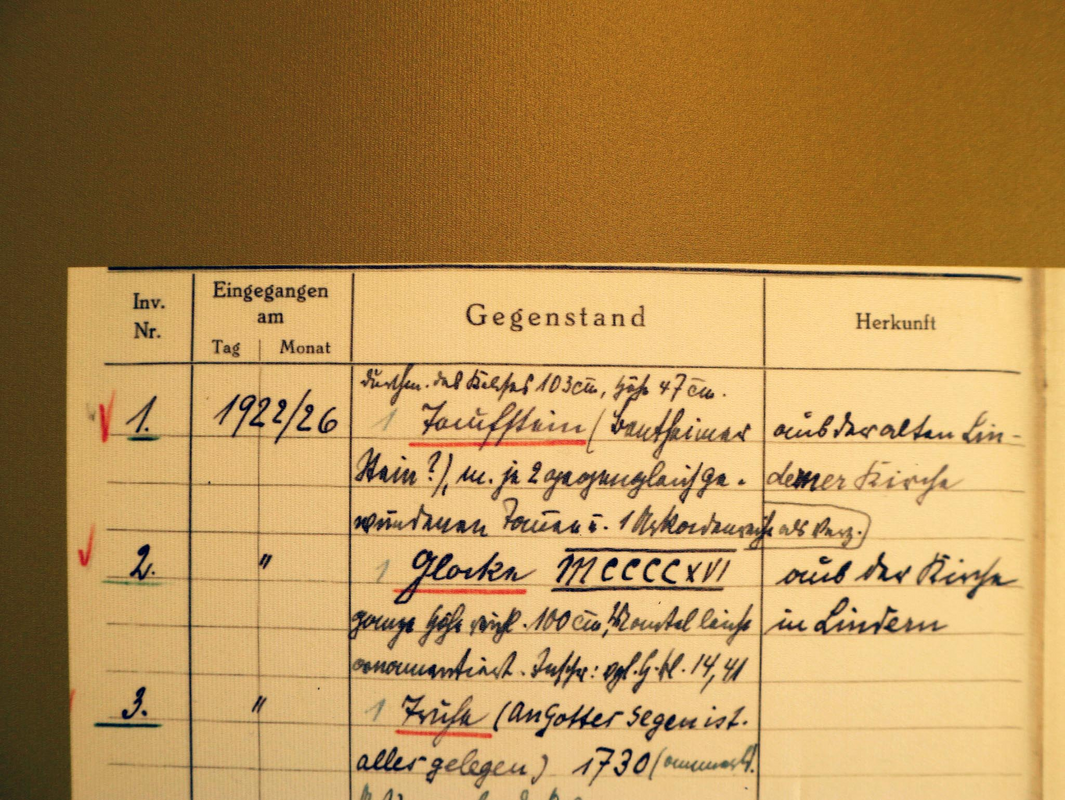 Inv. Nr.
Eingegangen am
Tag Monat
Gegenstand
Herkunft
Durchm. des Kelches 103 cm, Höhe 47 cm.
1. 1922/26 1 Taufstein (Bentheimer
Stein?), m. je 2 gegengleich ge-
wundenen Tauen u. 1 als Verz.)
aus der alten Lin-
dener Kirche
2. " 1 Glocke MCCCCXVI
ganze Höhe 100 cm, Mantel leicht
ornamentiert. Inschr.: vgl. H. bl. 14, 41
aus der Kirche
in Lindern
3. " 1 Truhe (An Gottes Segen ist
alles gelegen) 1730